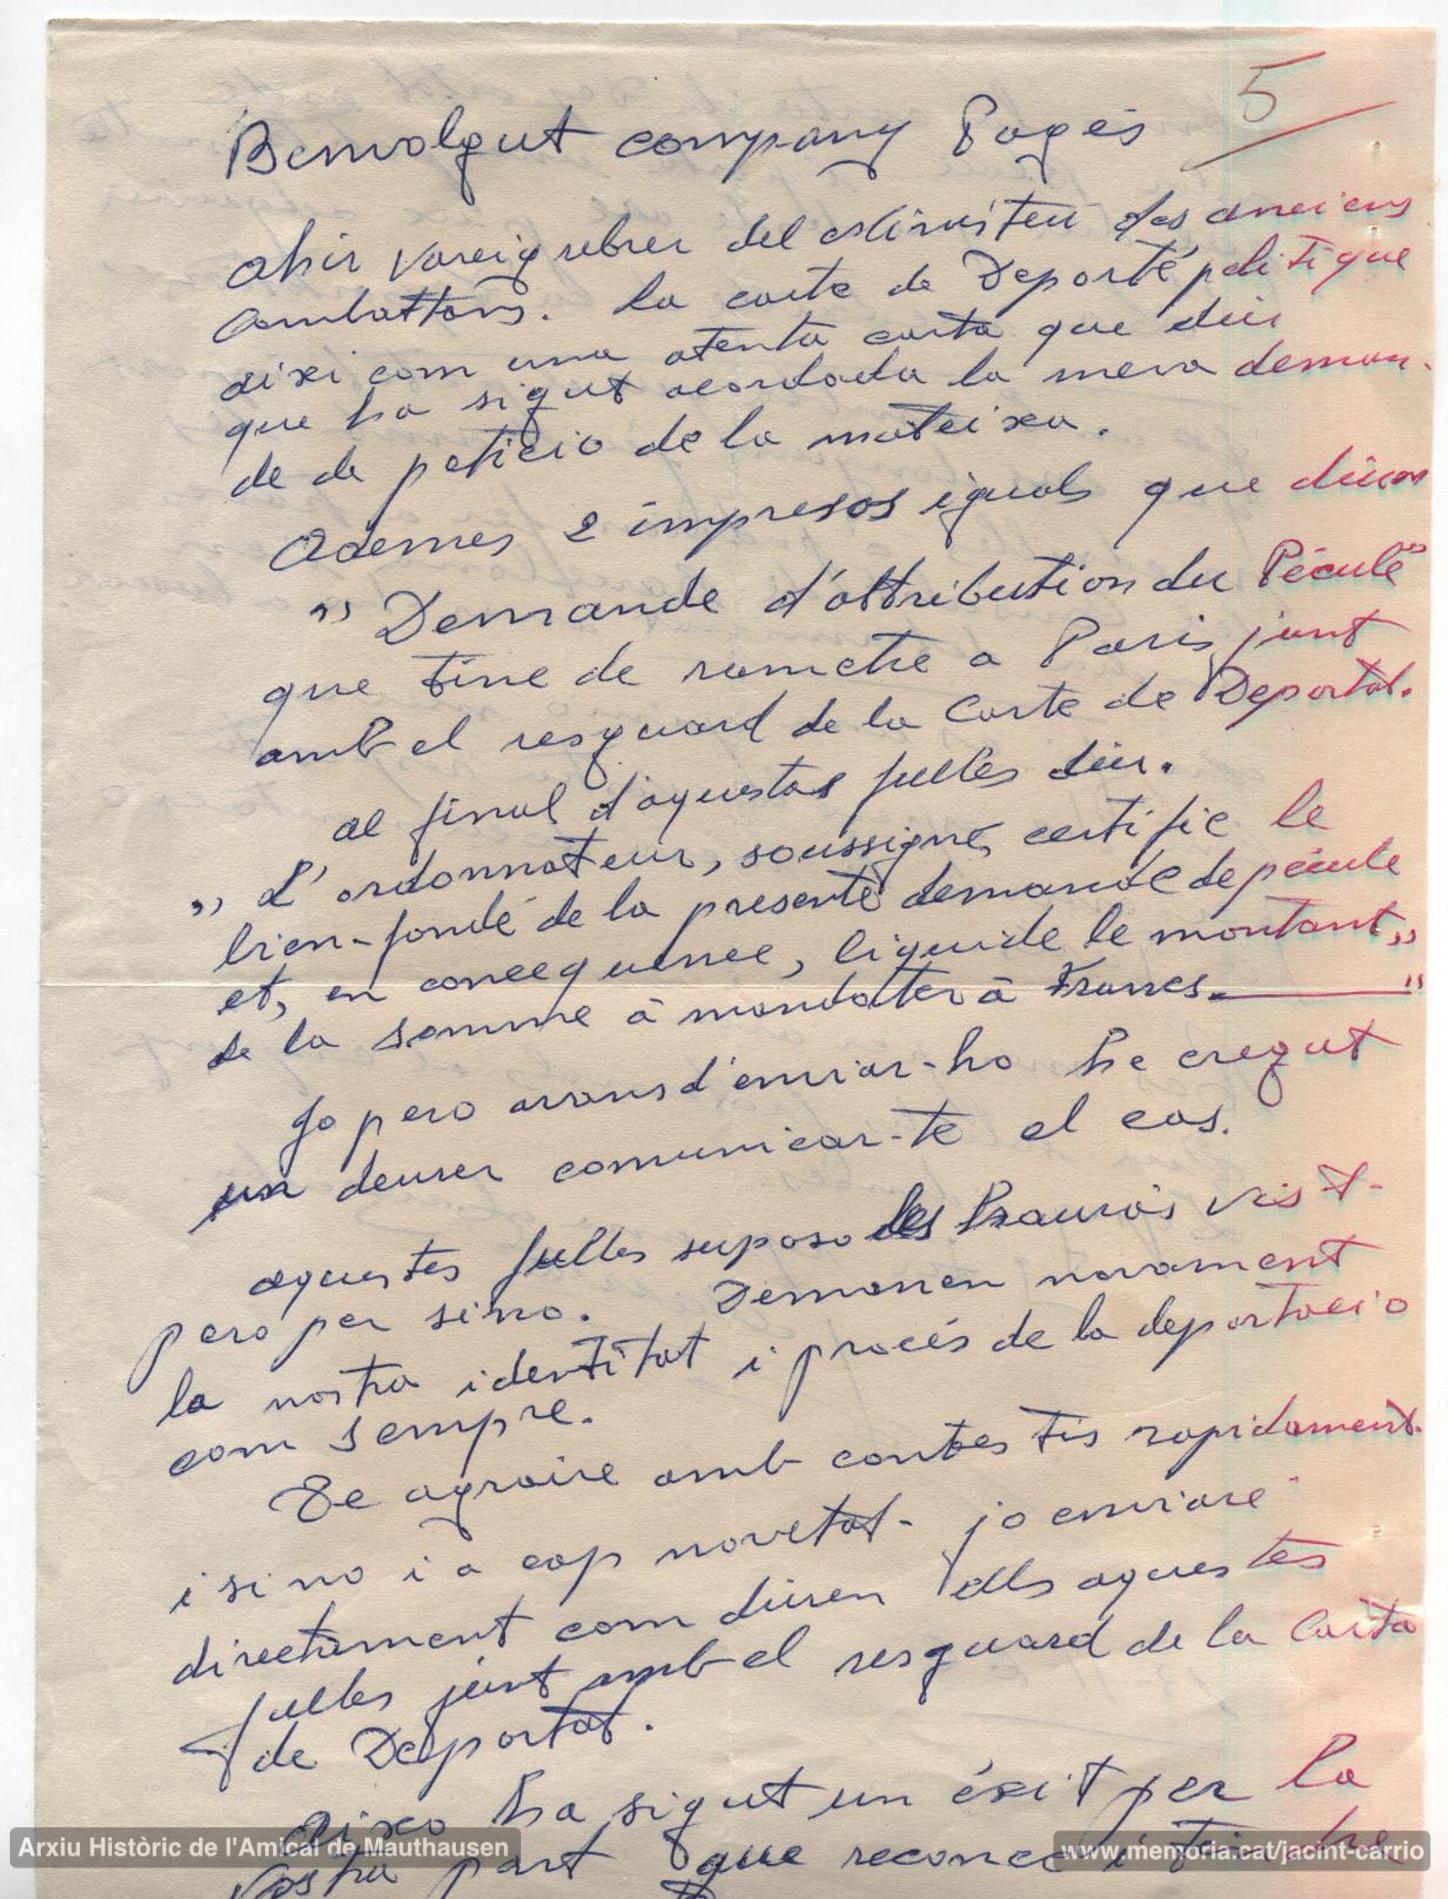 5
Benvolgut company Pagés
ahir vareig rebrer del Ministeri des anciens
Combattans. La carte de Deporté politique
aixi com una atenta carta que diu
que ha sigut acordada la meva deman-
de de peticio de la mateixa.
Ademes 2 impresos iguals que diuen
" Demande d'attribution du Péculé"
que tinc de rametre a Paris, junt
amb el resguard de la Carte de Deportat.
al final d'aquestas fulles diu.
" L'ordonnateur, soussigné, certifie le
bien-fondé de la presente demande de pécule
et, en concequence, liquide le montant "
de la somme à mandater à Francs. "
Jo pero avans d'enviar-ho he cregut
un deurer comunicar-te el cas.
aquestes fulles suposo les hauràs vist-
pero per sino. Demanen novament
la nostra identitat i procés de la deportacio
com sempre.
Te agraire amb contestis rapidament.
i si no i a cap novetat - jo enviaré
directament com diuen ells aquestes
fulles junt amb el resguard de la Carta
de Deportat.
Aixo ha sigut un éxit per la
vostra part que reconec i
Arxiu Històric de l'Amical de Mauthausen
www.memoria.cat/jacint-carrio